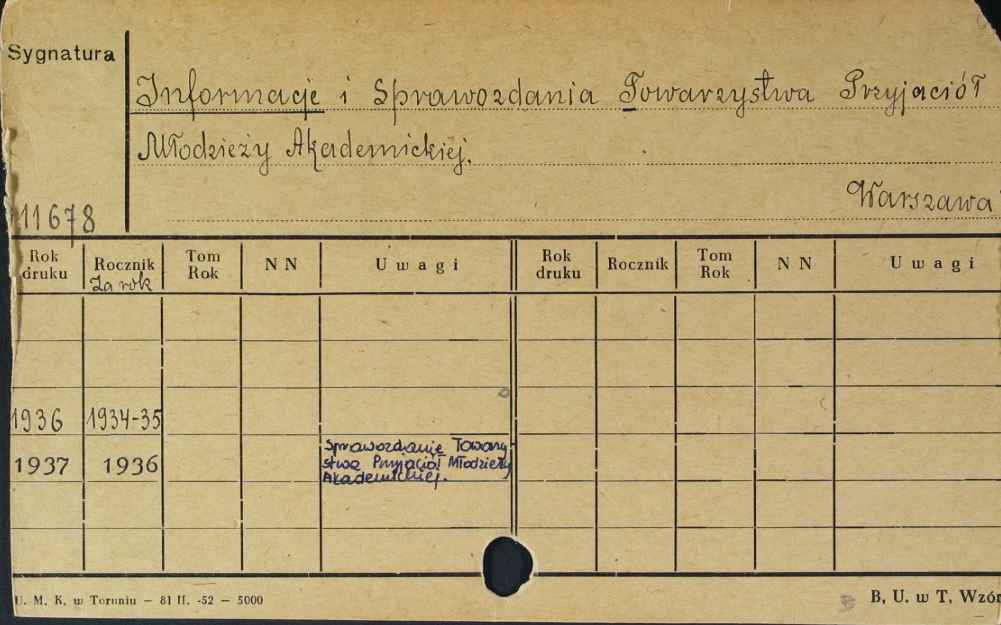 Sygnatura
Informacje i Sprawozdania Towarzystwa Przyjaciół
Młodzieży Akademickiej.
Warszawa
11678
Rok druku Rocznik Za rok Tom Rok N N Uwagi Rok druku Rocznik Tom Rok N N Uwagi
1936 1934-35
1937 1936 Sprawozdanie Towarzy-
stwa Przyjaciół Młodzieży
Akademickiej.
U. M. K. w Toruniu — 81 II. -52 — 5000 B. U. w T. Wzór